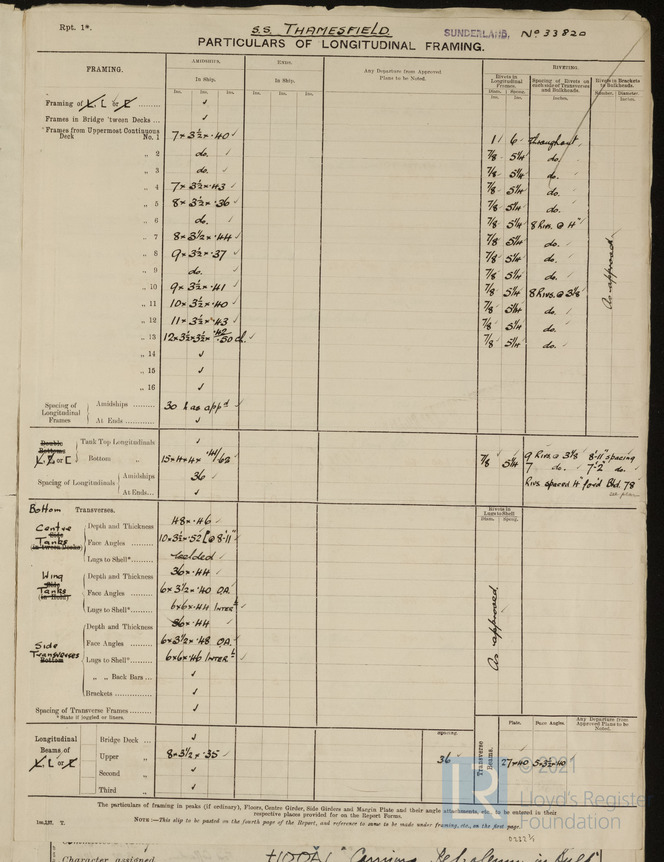 Rpt. 1*.
S.S. THAMESFIELD
SUNDERLAND. No 33820
PARTICULARS OF LONGITUDINAL FRAMING.
FRAMING.
AMIDSHIPS.
ENDS.
Any Departure from Approved Plans to be Noted.
RIVETING.
In Ship.
In Ship.
Rivets in Longitudinal Frames.
Spacing of Rivets on each side of Transverses and Bulkheads.
Rivets in Brackets to Bulkheads.
Ins. Ins. Ins. Ins. Ins. Ins.
Diam. Ins.
Inches.
Diameter. Inches.
Framing of L, L or [ ✓
Frames in Bridge 'tween Decks ... ✓
Frames from Uppermost Continuous Deck No. 1 7 × 3½ × .40 ✓ 1 6 throughout
„ 2 do. ✓ 7/8 5¼ do.
„ 3 do. ✓ 7/8 5¼ do.
„ 4 7 × 3½ × .43 ✓ 7/8 5¼ do.
„ 5 8 × 3½ × .36 ✓ 7/8 5¼ do.
„ 6 do. ✓ 7/8 5¼ 8 Rivs. @ 4"
„ 7 8 × 3½ × .44 ✓ 7/8 5¼ do.
„ 8 9 × 3½ × .37 ✓ 7/8 5¼ do.
„ 9 do. ✓ 7/8 5¼ do.
„ 10 9 × 3½ × .41 ✓ 7/8 5¼ 8 Rivs. @ 3⅞
„ 11 10 × 3½ × .40 ✓ 7/8 5¼ do.
„ 12 11 × 3½ × .43 ✓ 7/8 5¼ do.
„ 13 12 × 3½ × 3½ × .42/.50 ch. ✓ 7/8 5¼ do.
As approved
„ 14 ✓
„ 15 ✓
„ 16 ✓
Spacing of Longitudinal Frames
Amidships 30 & as app'd ✓
At Ends ✓
Double Bottoms
L, L or [
Tank Top Longitudinals ✓
Bottom „ 15 × 4 × 4 × .41/.62 ✓ 7/8 5¼ 9 Rivs. @ 3⅛ 8'-11" spacing
7 do. 7'-2" do.
Spacing of Longitudinals
Amidships 36 ✓ Rivs. spaced 4" for'd Bhd. 78
At Ends... ✓
Bottom Transverses.
Rivets in Lugs to Shell
Diam. Spacg.
Centre Side Tanks (in tween Decks)
Depth and Thickness 48 × .46 ✓
Face Angles 10 × 3½ × .52 [ @ 8'-11"
Lugs to Shell* welded ✓
Wing Side Tanks (in Hold)
Depth and Thickness 36 × .44 ✓
Face Angles 6 × 3½ × .40 O.A. ✓
Lugs to Shell* 6 × 6 × .44 INTER ✓
As approved
Side Transverses Bottom
Depth and Thickness 36 × .44 ✓
Face Angles 6 × 3½ × .48 O.A. ✓
Lugs to Shell* 6 × 6 × .46 INTER ✓
„ „ Back Bars ... ✓
Brackets ✓
Spacing of Transverse Frames ✓
* State if joggled or liners.
Longitudinal Beams of L, L or [
Bridge Deck ... ✓
Upper „ 8 × 3½ × .35 ✓
Second „ ✓
Third „ ✓
Spacing.
36 ✓
Transverse Beams.
Plate. Face Angles. Any Departure from Approved Plans to be Noted.
27 × .40 5 × 3½ × .40
The particulars of framing in peaks (if ordinary), Floors, Centre Girder, Side Girders and Margin Plate and their angle attachments, etc., to be entered in their
respective places provided for on the Report Forms.
NOTE:—This slip to be pasted on the fourth page of the Report, and reference to same to be made under framing, etc., on the first page.
© 2021
LR
Lloyd's Register
Foundation
Character assigned
+100A1 "Carrying Petroleum in Bulk"